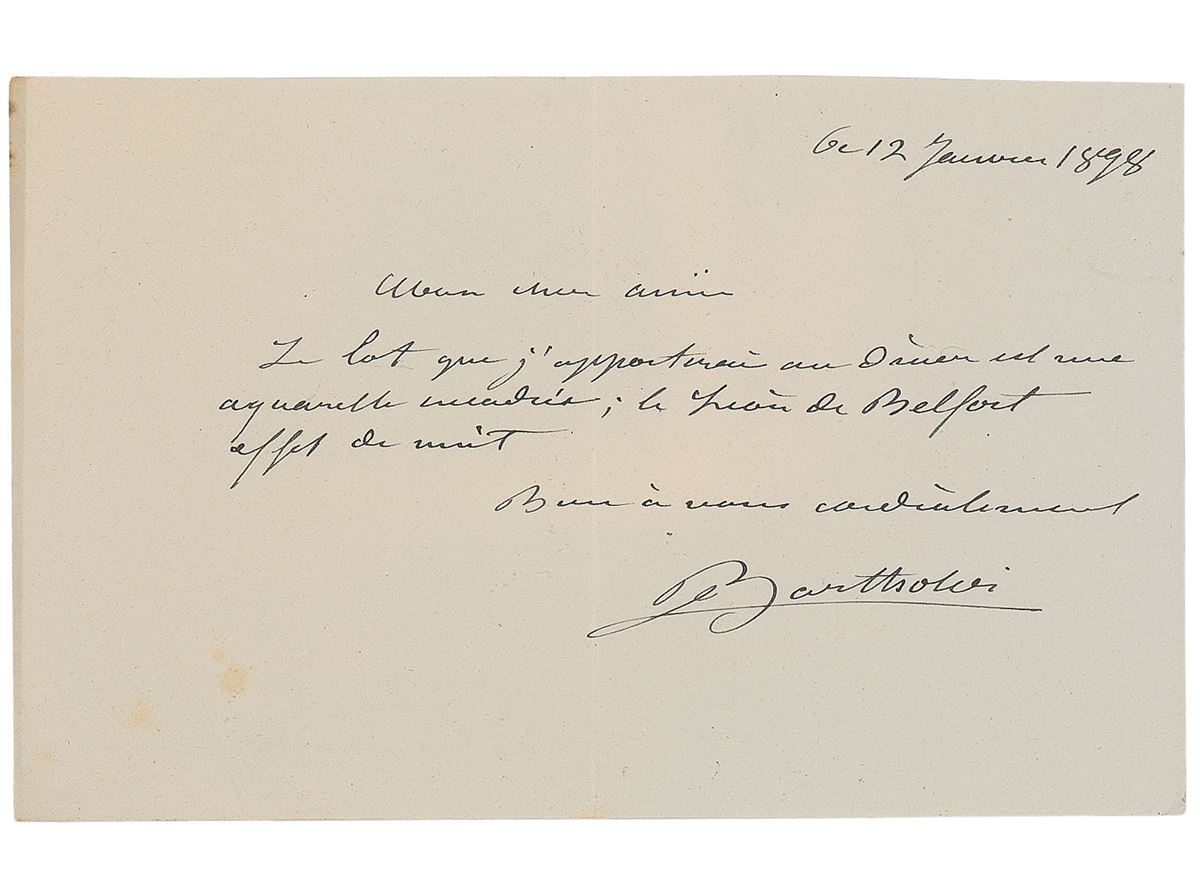 Ce 12 Janvier 1898
Mon cher ami
Le lot que j'apporterai au dîner est une
aquarelle encadrée ; le Lion de Belfort
effet de nuit
Bien à vous cordialement
Bartholdi